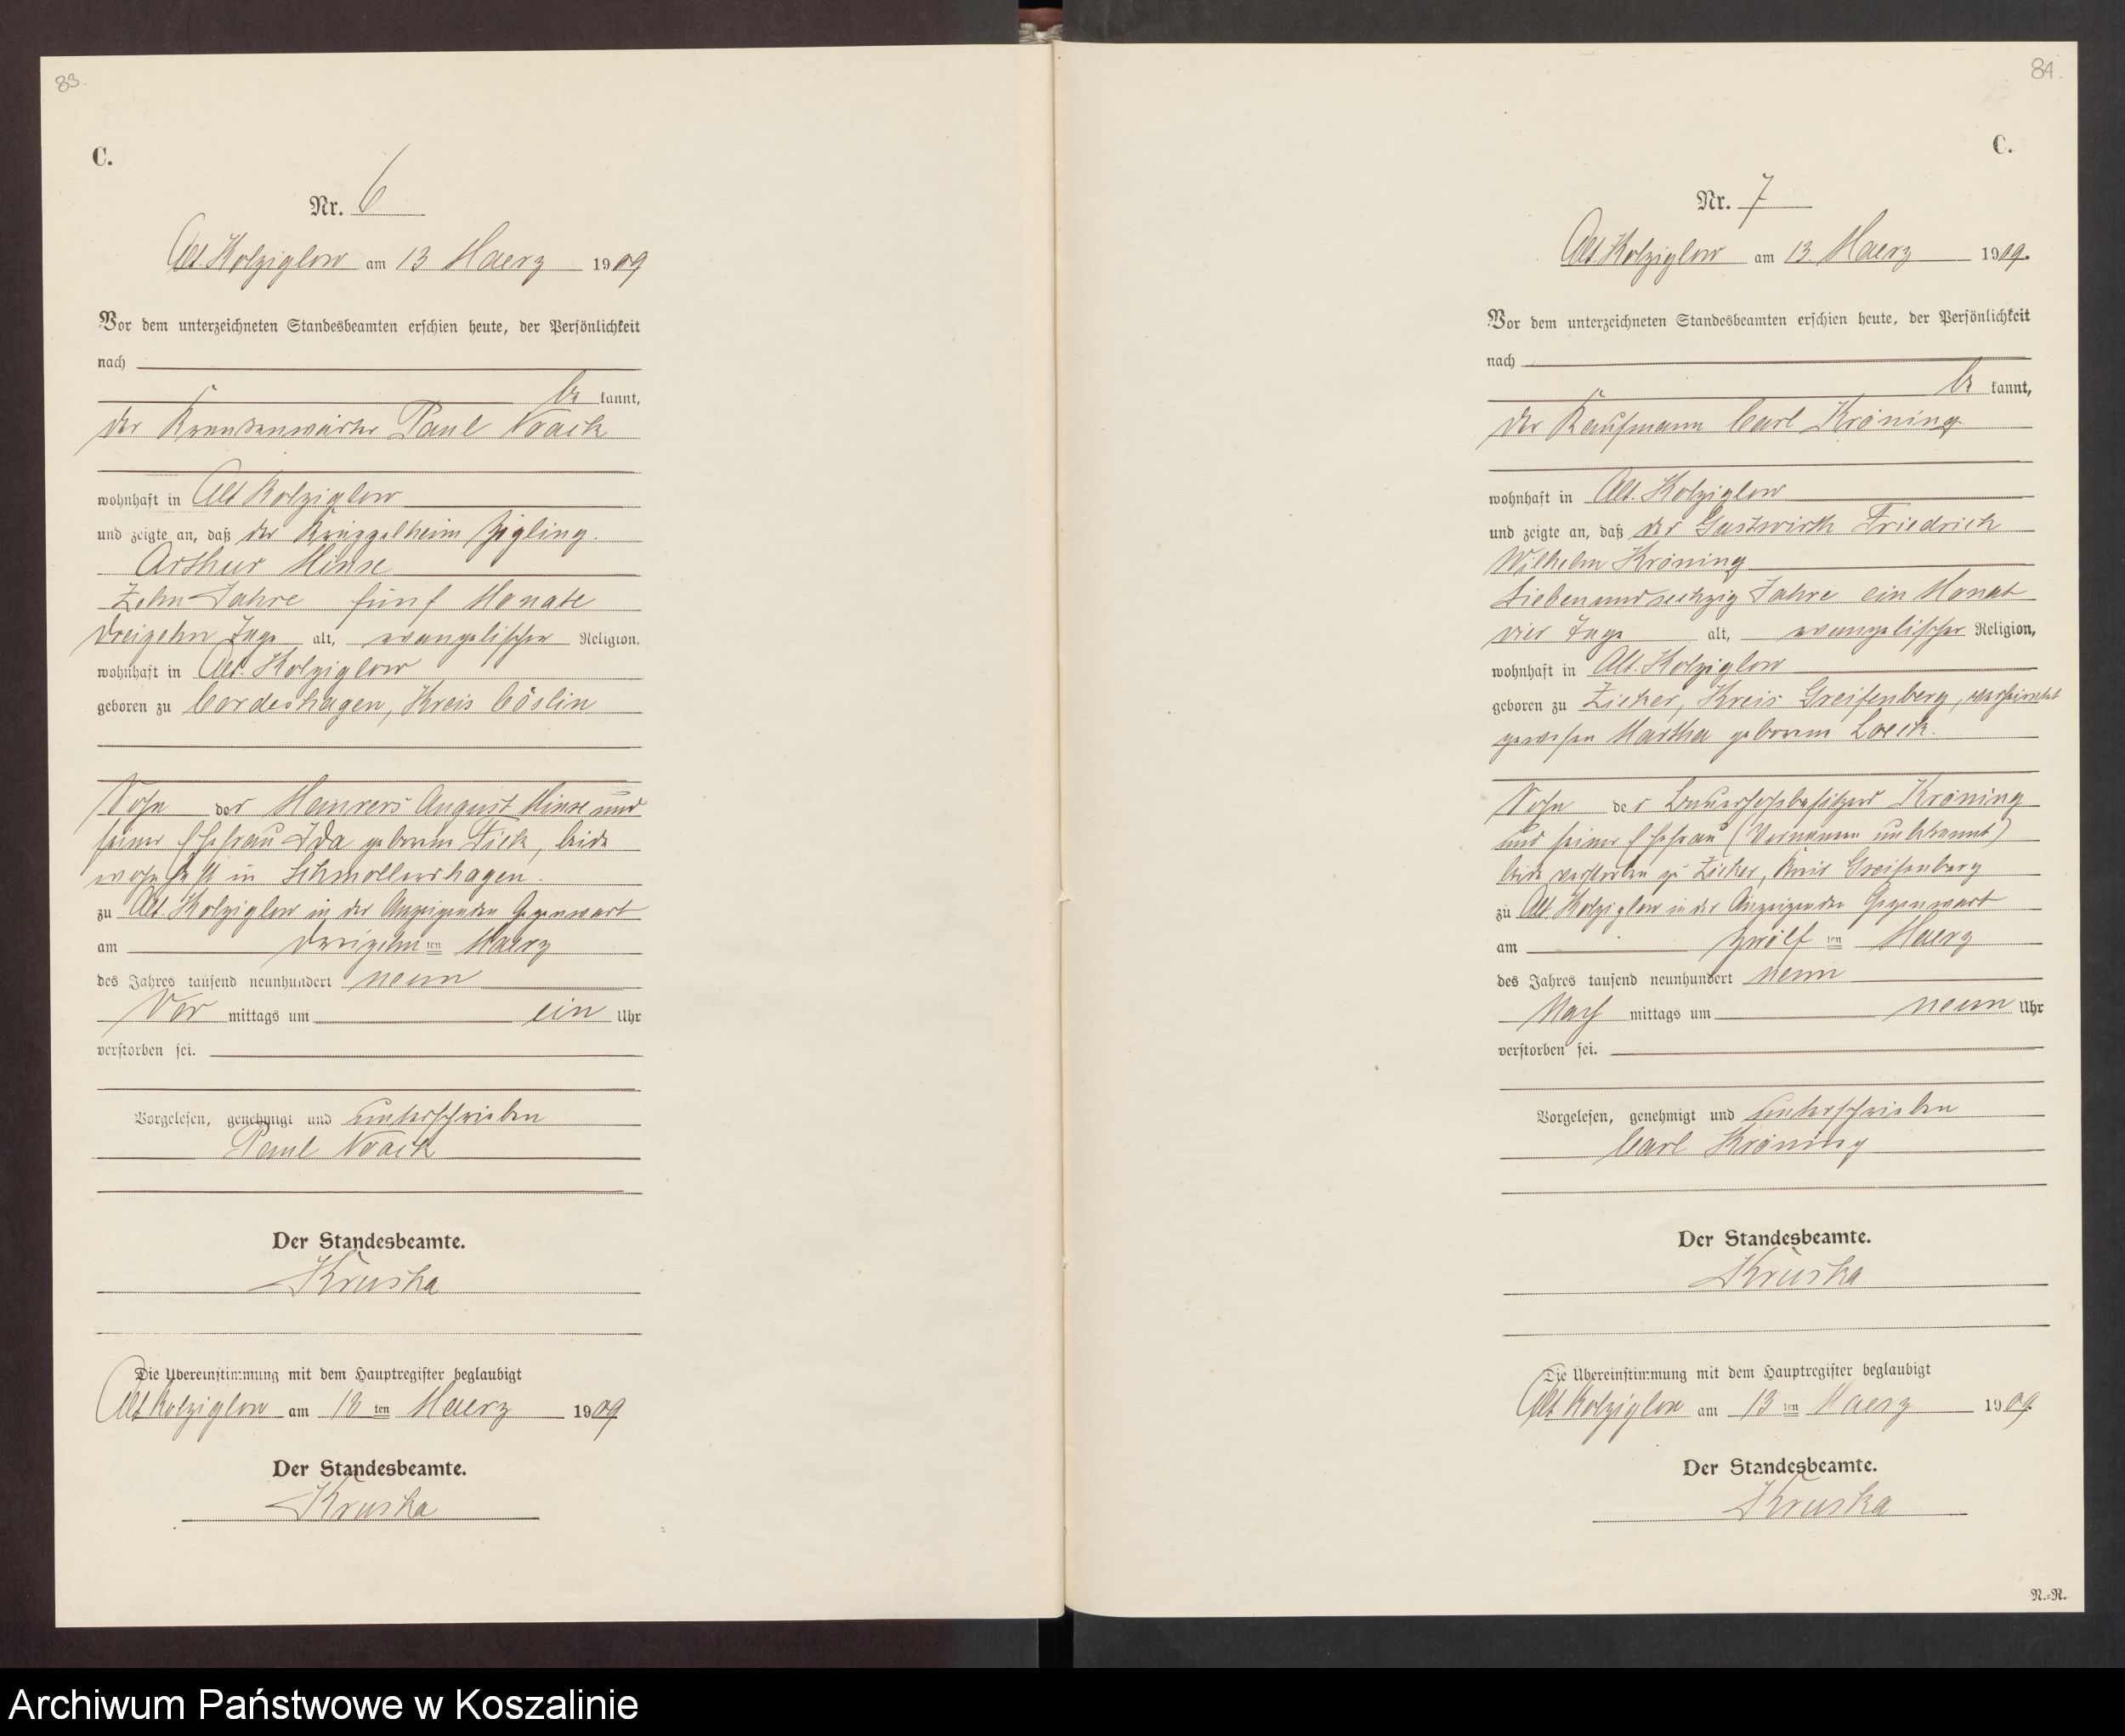 83.
C.
Nr. 6
Alt. Kolziglow am 13 Maerz 1909
Vor dem unterzeichneten Standesbeamten erschien heute, der Persönlichkeit
nach
be kannt,
der Krankenwärter Paul Noack
wohnhaft in Alt Kolziglow
und zeigte an, daß der Krüppelheim Zögling
Arthur Hinse
Zehn Jahre fünf Monate
dreizehn Tage alt, evangelischer Religion,
wohnhaft in Alt. Kolziglow
geboren zu Cordeshagen, Kreis Cöslin
Sohn der Maurers August Hinse und
seiner Ehefrau Ida geborene Fick, beide
wohnhaft in Schmollenhagen.
zu Alt Kolziglow in der Anzeigenden Gegenwart
am dreizehn ten Maerz
des Jahres tausend neunhundert neun
Vor mittags um ein Uhr
verstorben sei.
Vorgelesen, genehmigt und unterschrieben
Paul Noack
Der Standesbeamte.
Kruska
Die Übereinstimmung mit dem Hauptregister beglaubigt
Alt Kolziglow am 13 ten Maerz 1909
Der Standesbeamte.
Kruska
84.
C.
Nr. 7
Alt Kolziglow am 13. Maerz 1909.
Vor dem unterzeichneten Standesbeamten erschien heute, der Persönlichkeit
nach
be kannt,
der Kaufmann Carl Kröning
wohnhaft in Alt. Kolziglow
und zeigte an, daß der Gastwirth Friedrich
Wilhelm Kröning
Siebenundsechzig Jahre ein Monat
vier Tage alt, evangelischer Religion,
wohnhaft in Alt. Kolziglow
geboren zu Zicker, Kreis Greifenberg, verheirathet
gewesen Martha geborene Loeck.
Sohn der Bauerhofsbesitzers Kröning
und seiner Ehefrau (Vornamen unbekannt)
beide verstorben zu Zicker, Kreis Greifenberg
zu Alt Kolziglow in der Anzeigenden Gegenwart
am zwölf ten Maerz
des Jahres tausend neunhundert neun
Nach mittags um neun Uhr
verstorben sei.
Vorgelesen, genehmigt und unterschrieben
Carl Kröning
Der Standesbeamte.
Kruska
Die Übereinstimmung mit dem Hauptregister beglaubigt
Alt Kolziglow am 13 ten Maerz 1909.
Der Standesbeamte.
Kruska
N.-R.
Archiwum Państwowe w Koszalinie